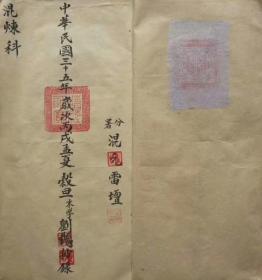 分署混元雷壇
中華民國三十五年歲次丙戌孟夏穀旦末學劉
抄錄
混煉科